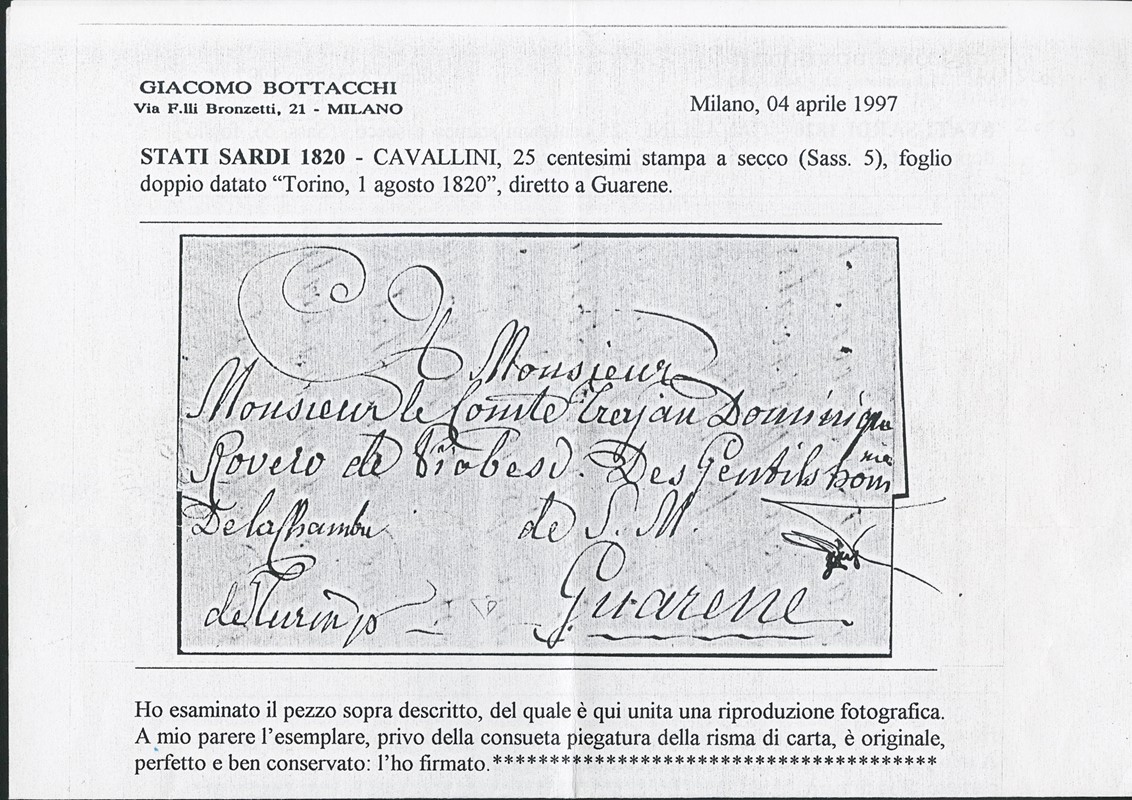 GIACOMO BOTTACCHI
Via F.lli Bronzetti, 21 - MILANO
Milano, 04 aprile 1997
STATI SARDI 1820 - CAVALLINI, 25 centesimi stampa a secco (Sass. 5), foglio
doppio datato “Torino, 1 agosto 1820”, diretto a Guarene.
A Monsieur
Monsieur le Comte Trajan Dominique
Rovero de Des Gentilshom
me
De la Chambre de S. M.
de Turin Guarene
Ho esaminato il pezzo sopra descritto, del quale è qui unita una riproduzione fotografica.
A mio parere l’esemplare, privo della consueta piegatura della risma di carta, è originale,
perfetto e ben conservato: l’ho firmato.***************************************